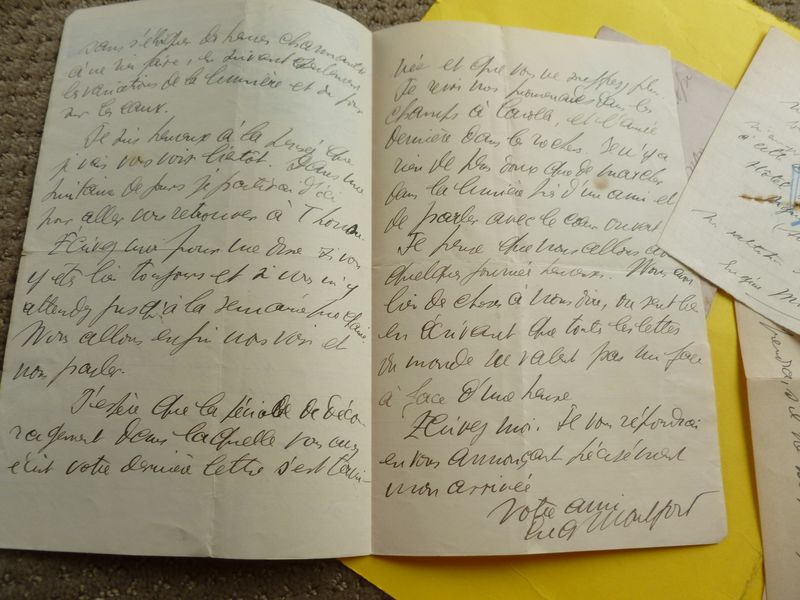 sans s'occuper des heures charmantes
à ne rien faire, en suivant seulement
les variations de la lumière et du jour
sur les eaux.
Je suis heureux à la pensée que
je vais vous voir bientôt. Dans une
huitaine de jours je partirai d'ici
pour aller vous retrouver à Thonon.
Écrivez moi pour me dire si vous
y êtes bien toujours et si vous m'y
attendez jusqu'à la semaine prochaine
Nous allons enfin nous voir et
nous parler.
J'espère que la période de déco-
ragement dans laquelle vous avez
écrit votre dernière lettre s'est termi-
née et que vous ne souffrez plus.
Je revois nos promenades dans les
champs à Lavolla, et l'année
dernière dans les roches. Il n'y a
rien de plus doux que de marcher
dans la lumière près d'un ami et
de parler avec le cœur ouvert
Je pense que nous allons avoir
quelques journées heureuses. Nous avons
bien des choses à nous dire, on sent bien
en écrivant que toutes les lettres
du monde ne valent pas un face
à face d'une heure
Écrivez moi. Je vous répondrai
en vous annonçant précisément
mon arrivée
votre ami
Eug Montfort